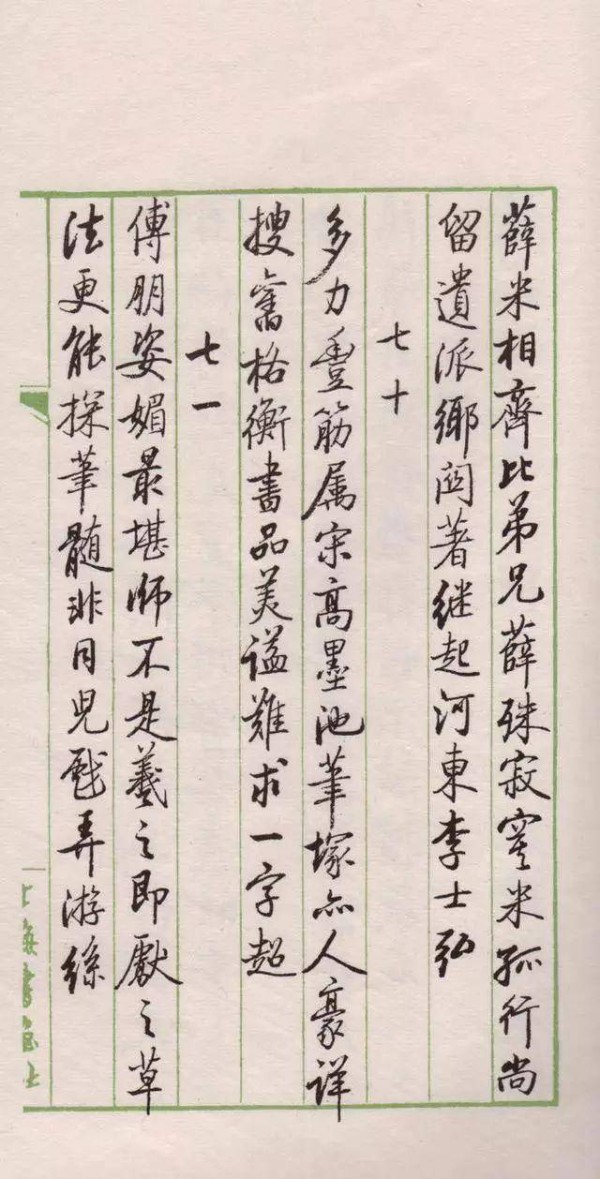 薛米相齊比弟兄薛殊寂寞米孤行尚
留遺派鄉閭著继起河東李士弘
七十
多力豐筋属宋高墨池筆塚亦人豪详
搜舊格衡書品美谥難求一字超
七一
傅朋姿媚最堪师不是羲之即獻之草
法更能探筆髓非同児戲弄游絲
上海書畫社